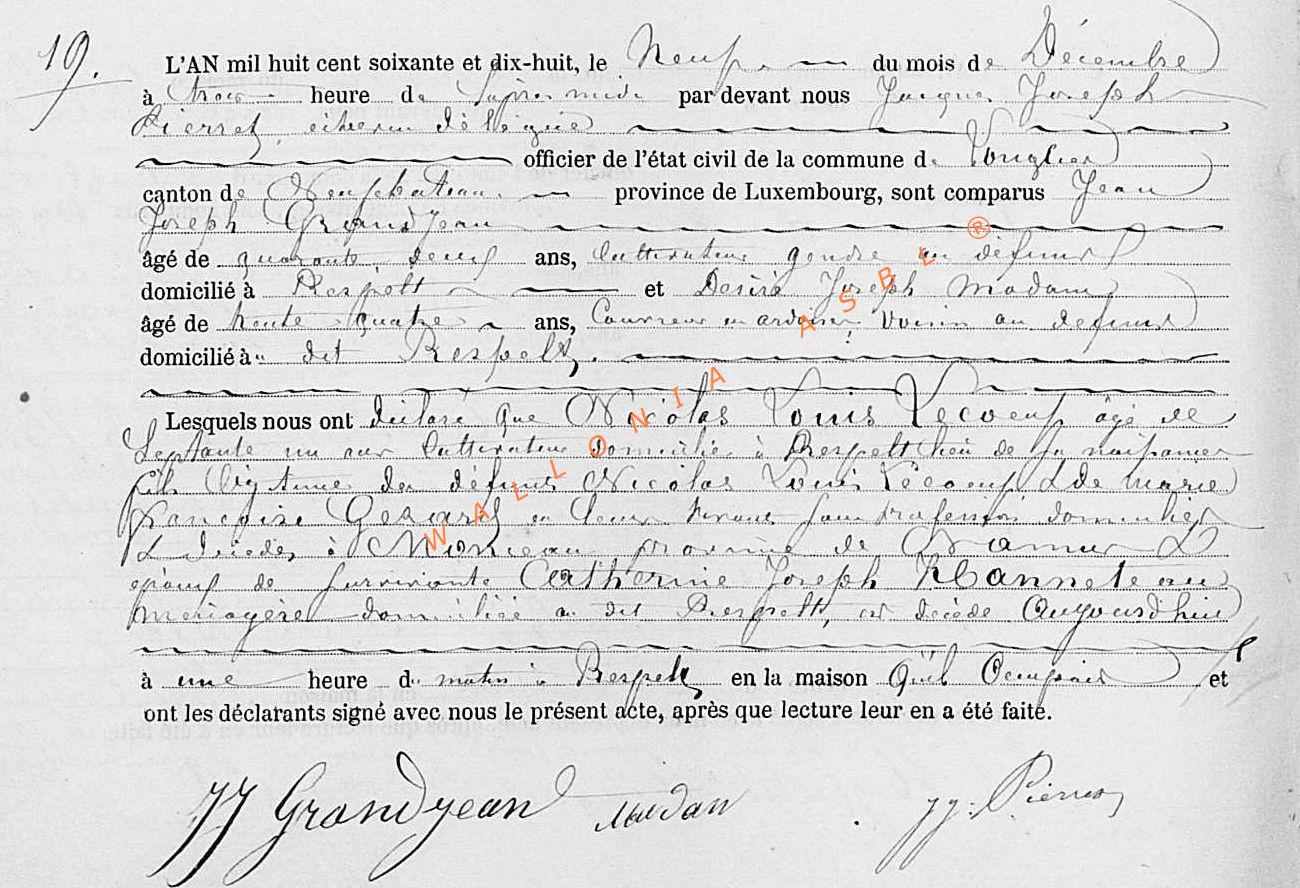 19.
L'AN mil huit cent soixante et dix-huit, le Neuf du mois de Décembre
à trois heure de l'après midi par devant nous Jacques Joseph
Pierret échevin délégué
officier de l'état civil de la commune de Longlier
canton de Neufchateau province de Luxembourg, sont comparus Jean
Joseph Grandjean
âgé de quarante deux ans, cultivateur gendre au défunt
domicilié à Respelt et Désiré Joseph Madan
âgé de trente quatre ans, Couvreur en ardoises, voisin au défunt
domicilié à dit Respelt.
Lesquels nous ont déclaré que Nicolas Louis Lecoeuf âgé de
Septante un ans cultivateur domicilié à Respelt lieu de sa naissance
fils légitime des défunts Nicolas Louis Lecoeuf & de Marie
Françoise en leur vivant sans profession domiciliés
& décédés à province de Namur &
époux de survivante Catherine Joseph Hanneteau
ménagère domiciliée au dit Respelt, est décédé Aujourd'hui
à une heure du matin à Respelt en la maison Qu'il Occupait et
ont les déclarants signé avec nous le présent acte, après que lecture leur en a été faite.
JJ Grandjean Madan JJ. Pierret
WALLONIA ASBL ®